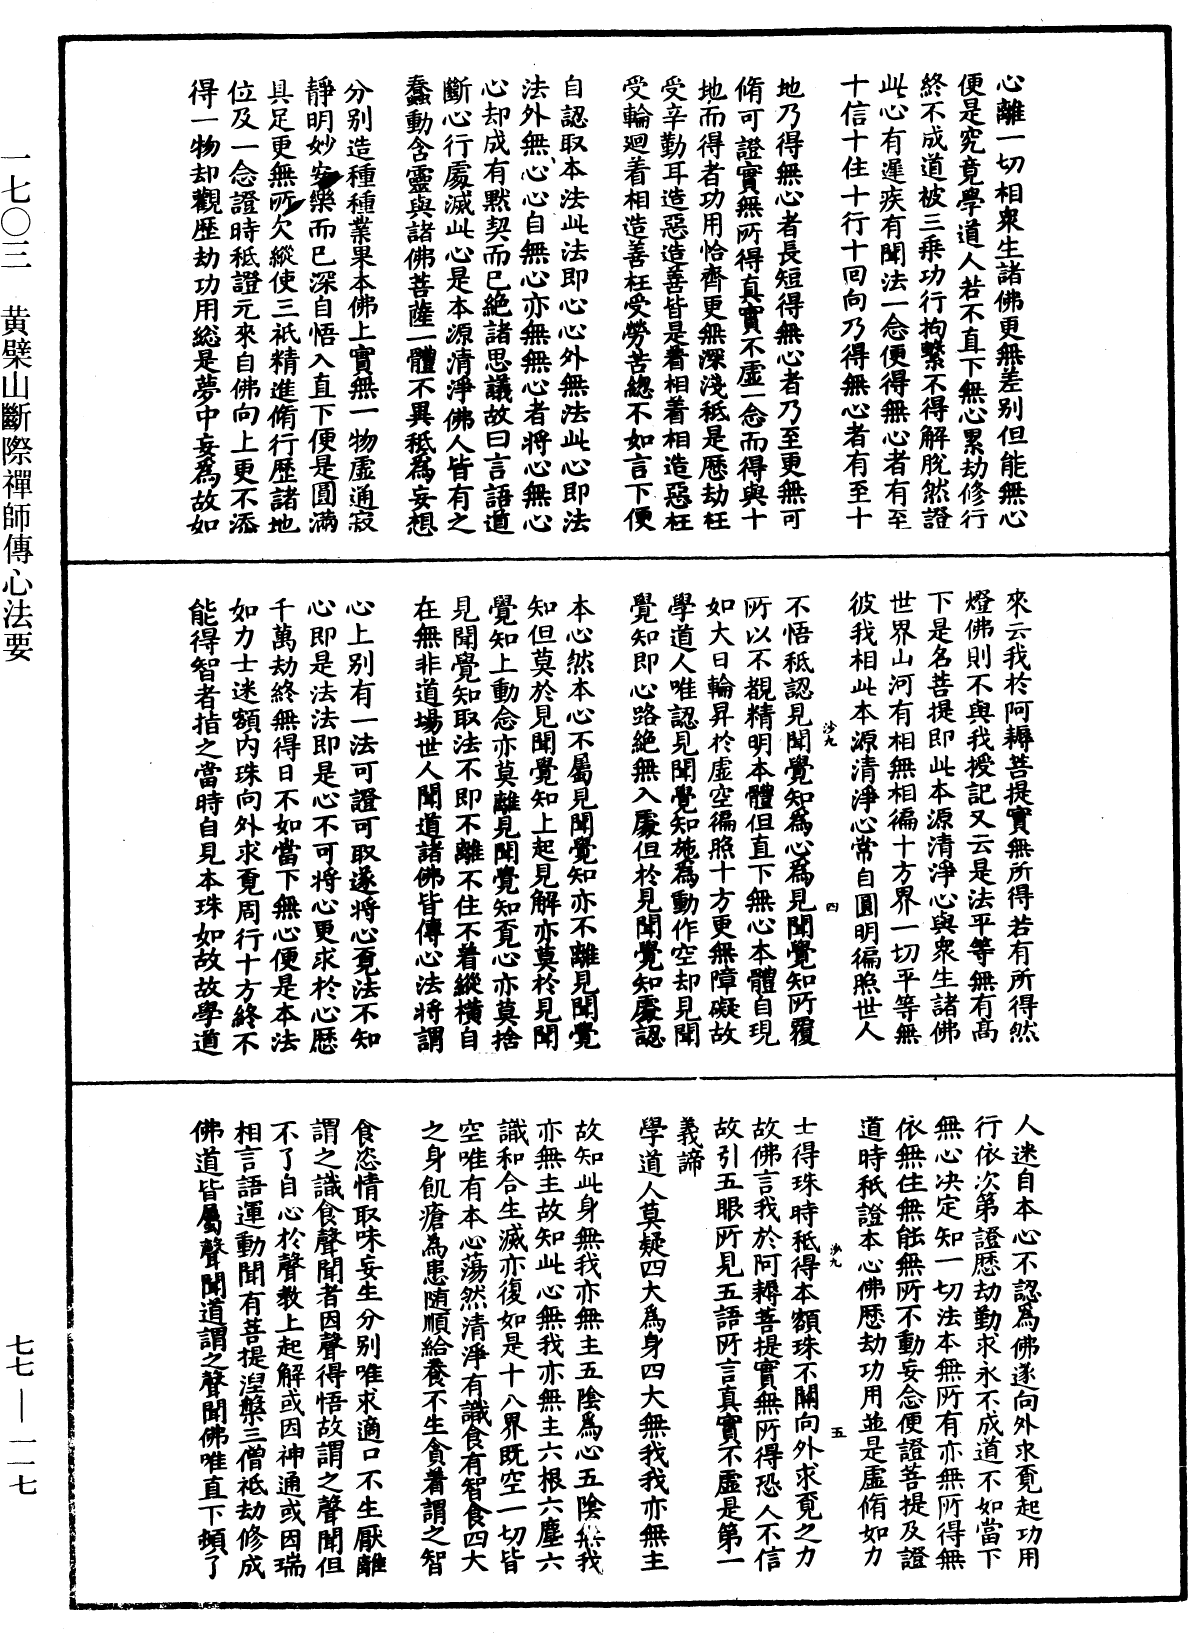 一七〇三　黃檗山斷際禪師傳心法要
心離一切相衆生諸佛更無差別但能無心
便是究竟學道人若不直下無心累劫修行
終不成道被三乘功行拘繫不得解脫然證
此心有遲疾有聞法一念便得無心者有至
十信十住十行十回向乃得無心者有至十
地乃得無心者長短得無心者乃至更無可
脩可證實無所得真實不虛一念而得與十
地而得者功用恰齊更無深淺秖是歷劫枉
受辛勤耳造惡造善皆是着相着相造惡枉
受輪迴着相造善枉受勞苦緫不如言下便
自認取本法此法即心心外無法此心即法
法外無心心自無心亦無無心者將心無心
心却成有默契而已絕諸思議故曰言語道
斷心行處滅此心是本源清淨佛人皆有之
蠢動含靈與諸佛菩薩一體不異秖為妄想
分別造種種業果本佛上實無一物虛通寂
靜明妙安樂而已深自悟入直下便是圓滿
具足更無所欠縱使三祇精進脩行歷諸地
位及一念證時秖證元來自佛向上更不添
得一物却觀歷劫功用総是夢中妄為故如
來云我於阿耨菩提實無所得若有所得然
燈佛則不與我授記又云是法平等無有高
下是名菩提即此本源清淨心與衆生諸佛
世界山河有相無相徧十方界一切平等無
彼我相此本源清淨心常自圓明徧照世人
沙九
四
不悟秖認見聞覺知為心為見聞覺知所覆
所以不覩精明本體但直下無心本體自現
如大日輪昇於虛空徧照十方更無障礙故
學道人唯認見聞覺知施為動作空却見聞
覺知即心路絕無入處但於見聞覺知處認
本心然本心不屬見聞覺知亦不離見聞覺
知但莫於見聞覺知上起見解亦莫於見聞
覺知上動念亦莫離見聞覺知覓心亦莫捨
見聞覺知取法不即不離不住不着縱橫自
在無非道場世人聞道諸佛皆傳心法將謂
心上別有一法可證可取遂將心覓法不知
心即是法法即是心不可將心更求於心歷
千萬劫終無得日不如當下無心便是本法
如力士迷額內珠向外求覓周行十方終不
能得智者指之當時自見本珠如故故學道
人迷自本心不認為佛遂向外求覓起功用
行依次第證歷劫勤求永不成道不如當下
無心決定知一切法本無所有亦無所得無
依無住無能無所不動妄念便證菩提及證
道時秖證本心佛歷劫功用並是虛脩如力
沙九
五
士得珠時秖得本額珠不關向外求覓之力
故佛言我於阿耨菩提實無所得恐人不信
故引五眼所見五語所言真實不虛是第一
義諦
學道人莫疑四大為身四大無我我亦無主
故知此身無我亦無主五陰為心五陰無我
亦無主故知此心無我亦無主六根六塵六
識和合生滅亦復如是十八界既空一切皆
空唯有本心蕩然清淨有識食有智食四大
之身飢瘡為患随順給養不生貪着謂之智
食恣情取味妄生分別唯求適口不生厭離
謂之識食聲聞者因聲得悟故謂之聲聞但
不了自心於聲教上起解或因神通或因瑞
相言語運動聞有菩提涅槃三僧祇劫修成
佛道皆屬聲聞道謂之聲聞佛唯直下頓了
七七—一一七